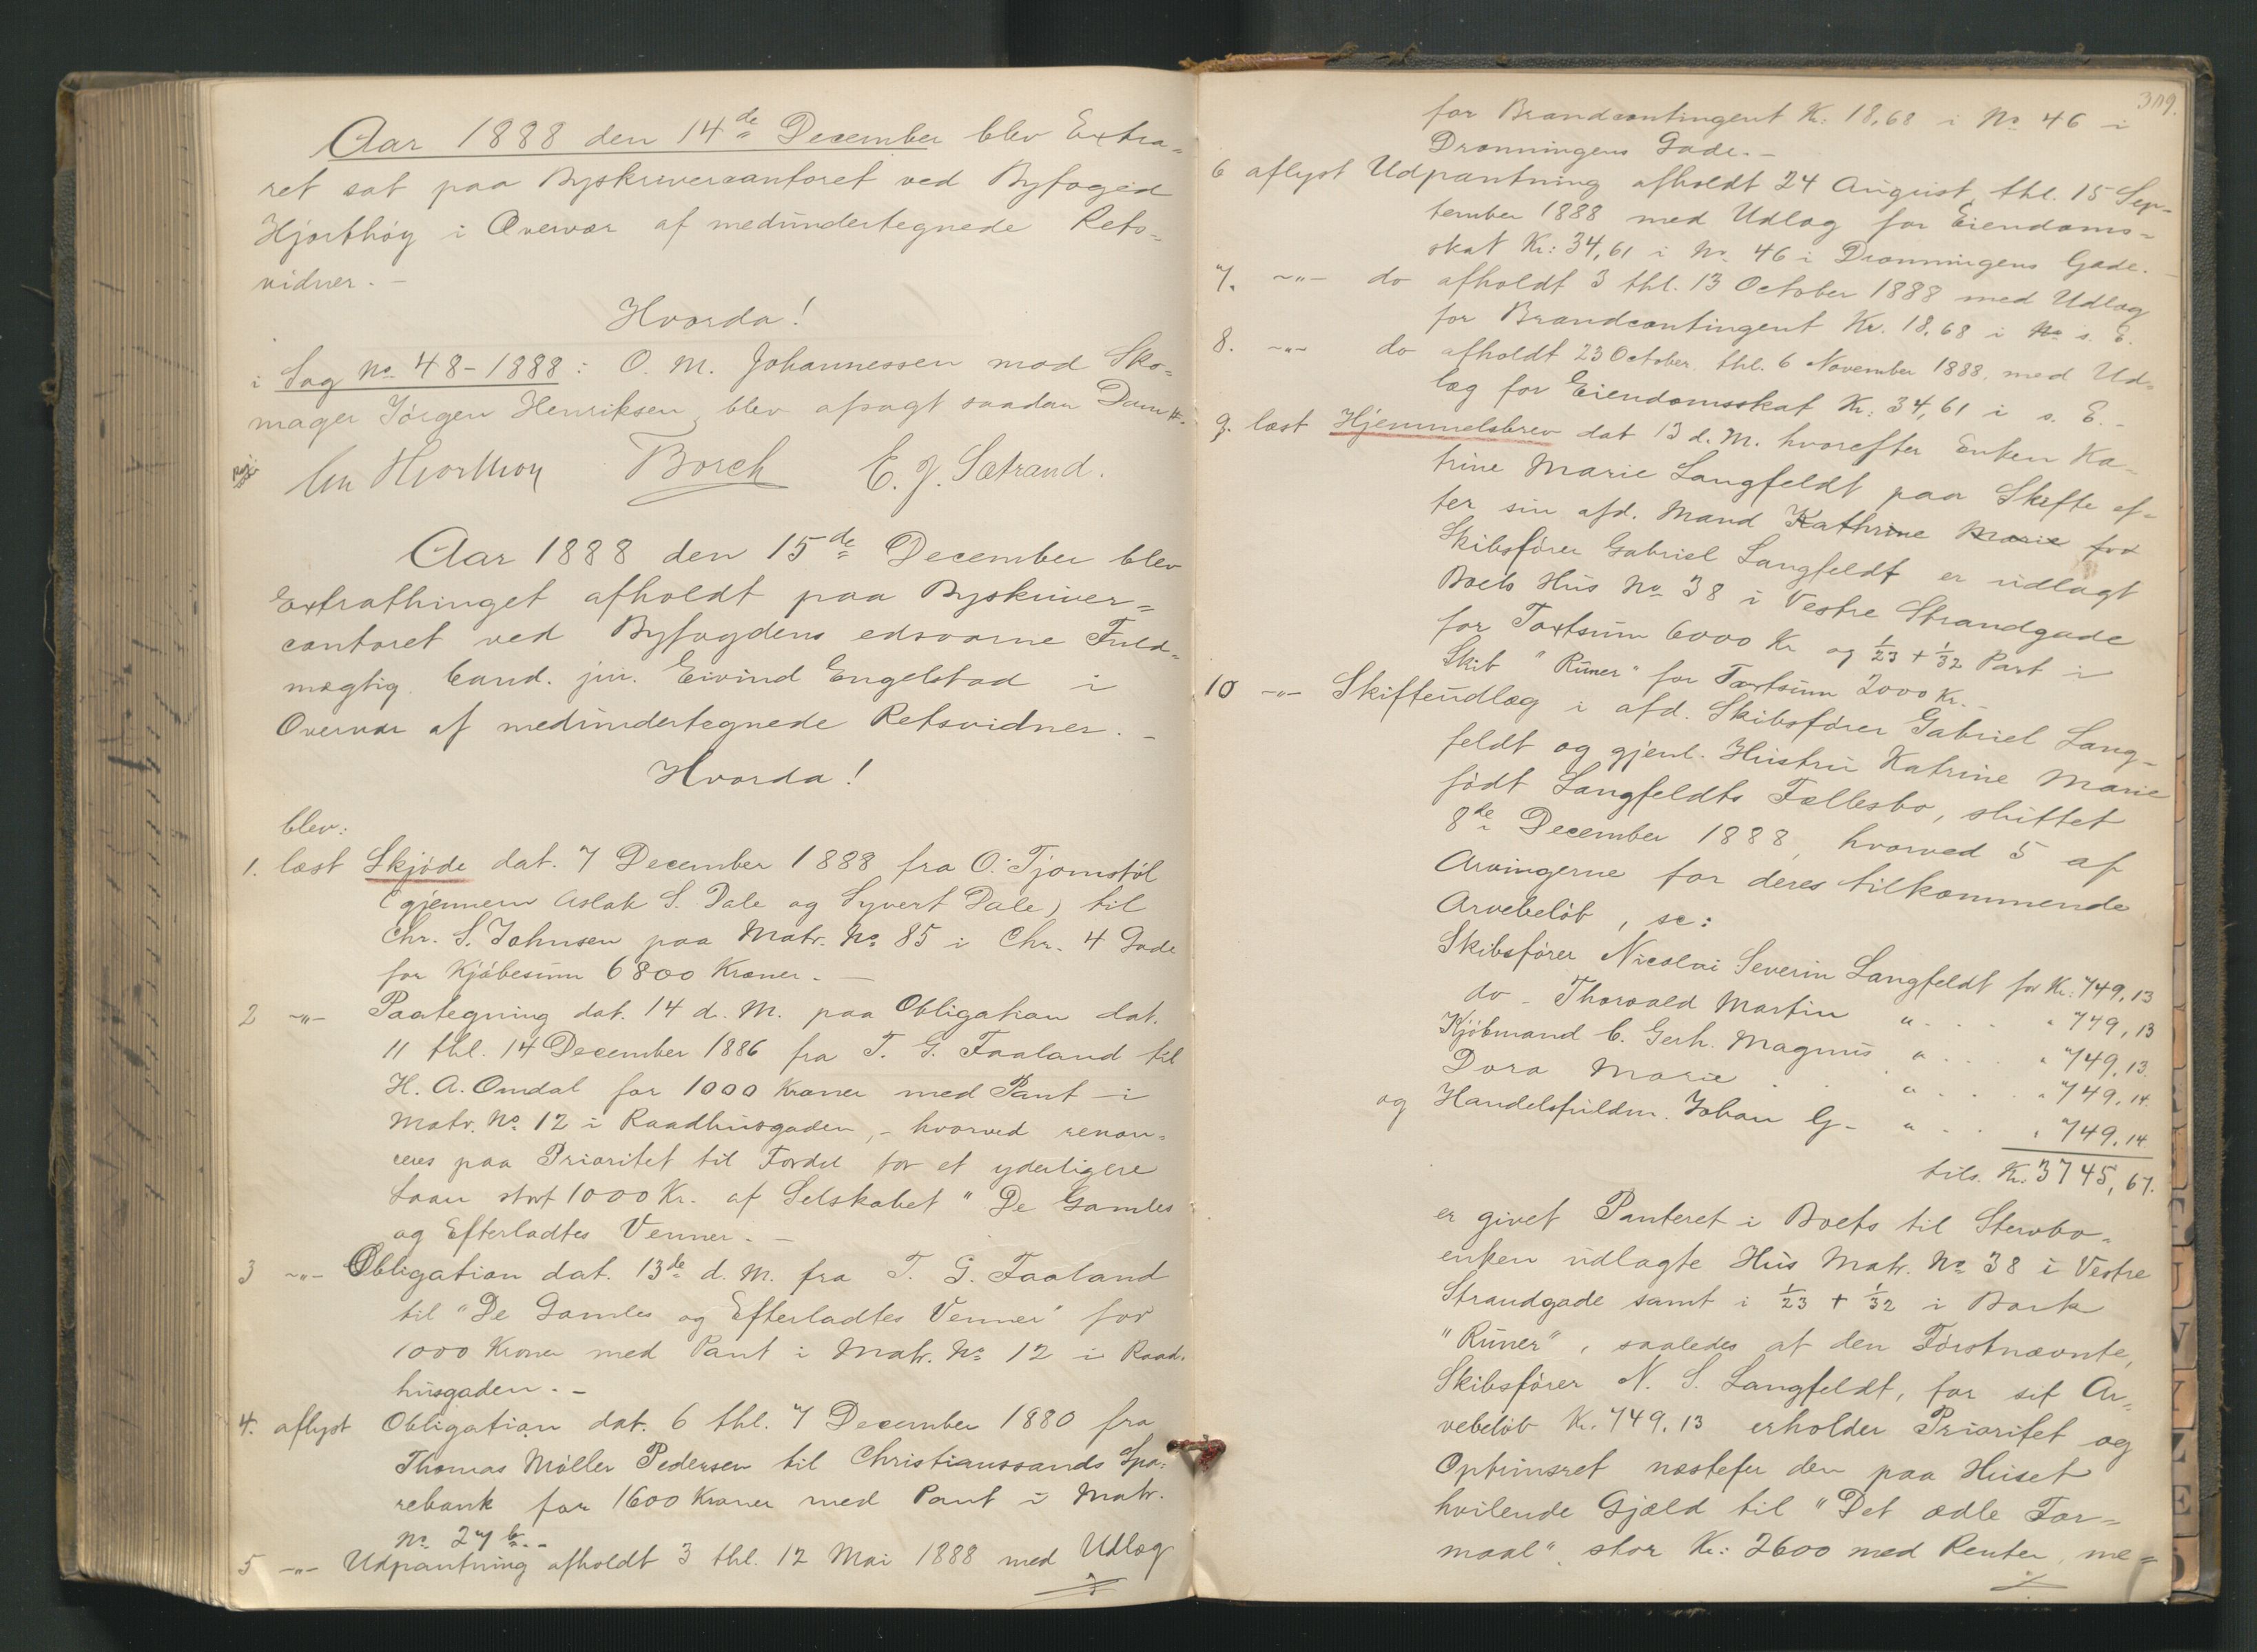 Aar 1888 den 14de December blev Extra=
ret sat paa Byskrivercontoret ved Byfoged
Hjorthøy i Overvær af medundertegnede Rets=
vidner. –
Hvorda!
i Sag No 48-1888: O. M. Johannessen mod Sko=
mager Jörgen Henriksen, blev afsagt saadan Dom
Borch E. J. Sætrand.
Aar 1888 den 15de December blev
Extrathinget afholdt paa Byskriver=
contoret ved Byfogdens edsvorne Fuld=
mægtig Cand. jur. Eivind Engelstad i
Overvær af medundertegnede Retsvidner. –
Hvorda!
blev:
1. læst Skjöde dat. 7 December 1888 fra O. Tjomstöl
(gjennem Aslak S. Dale og Syvert Dale) til
Chr. S. Johnsen paa Matr. No 85 i Chr. 4 Gade
for Kjöbesum 6800 Kroner. –
2 -"- Paategning dat. 14 d. M. paa Obligation dat.
11 thl. 14 December 1886 fra T. G. Faaland til
H. A. Omdal for 1000 Kroner med Pant i
Matr. No 12 i Raadhusgaden, – hvorved renon=
ceres paa Prioritet til Fordel for et yderligere
Laan stort 1000 Kr. af Selskabet "De Gamles
og Efterladtes Venner. –
3 -"- Obligation dat. 13de d. M. fra T. G. Faaland
til "De Gamles og Efterladtes Venner" for
1000 Kroner med Pant i Matr. No 12 i Raad=
husgaden. –
4. aflyst Obligation dat. 6 thl. 7 December 1880 fra
Thomas Möller Pedersen til Christianssands Spa=
rebank for 1600 Kroner med Pant i Matr.
No 27 b. –
5 -"- Udpantning afholdt 3 thl. 12 Mai 1888 med Udlæg
for Brandcontingent Kr: 18,68 i No 46 i
Dronningens Gade. –
6 aflyst Udpantning afholdt 24 August, thl. 15 Sep=
tember 1888 med Udlæg for Eiendoms=
skat Kr: 34,61 i No 46 i Dronningens Gade. –
7. -"- do afholdt 3 thl. 13 October 1888 med Udlæg
for Brandcontingent Kr. 18,68 i No s. E.
8. -"- do afholdt 23 October, thl. 6 November 1888, med Ud=
læg for Eiendomsskat Kr: 34,61 i s. E. –
9. læst Hjemmelsbrev dat 13 d. M. hvorefter Enken Ka=
trine Marie Langfeldt paa Skifte ef=
ter sin afd. Mand Kathrine Marie fød
Skibsförer Gabriel Langfeldt er udlagt
Boets Hus No 38 i Vestre Strandgade
for Taxtsum 6000 Kr og 1/23 + 1/32 Part i
Skib "Runer" for Taxtsum 2000 Kr. –
10 -"- Skifteudlæg i afd. Skibsförer Gabriel Lang=
feldt og gjenl. Hustru Katrine Marie
födt Langfeldts Fællesbo, sluttet
8de December 1888, hvorved 5 af
Arvingerne for deres tilkommende
Arvebelöb, sc:
Skibsförer Nicolai Severin Langfeldt for Kr: 749,13
do – Thorvald Martin " . . " 749,13
Kjöbmand C. Gerh. Magnus " . . " 749,13.
Dora Marie . . " . . " 749,14.
og Handelsfuldm. Johan G– " . . " 749,14
tils. Kr. 3745,67.
er givet Panteret i Boets til Stervbo=
enken udlagte Hus Matr. No 38 i Vestre
Strandgade samt i 1/23 + 1/32 i Bark
"Runer", saaledes at den Förstnævnte,
Skibsförer N. S. Langfeldt, for sit Ar=
vebelöb Kr. 749,13 erholder Prioritet og
Optrinsret næstefter den paa Huset
hvilende Gjæld til "Det ædle For=
maal" stor Kr: 2600 med Renter, me=